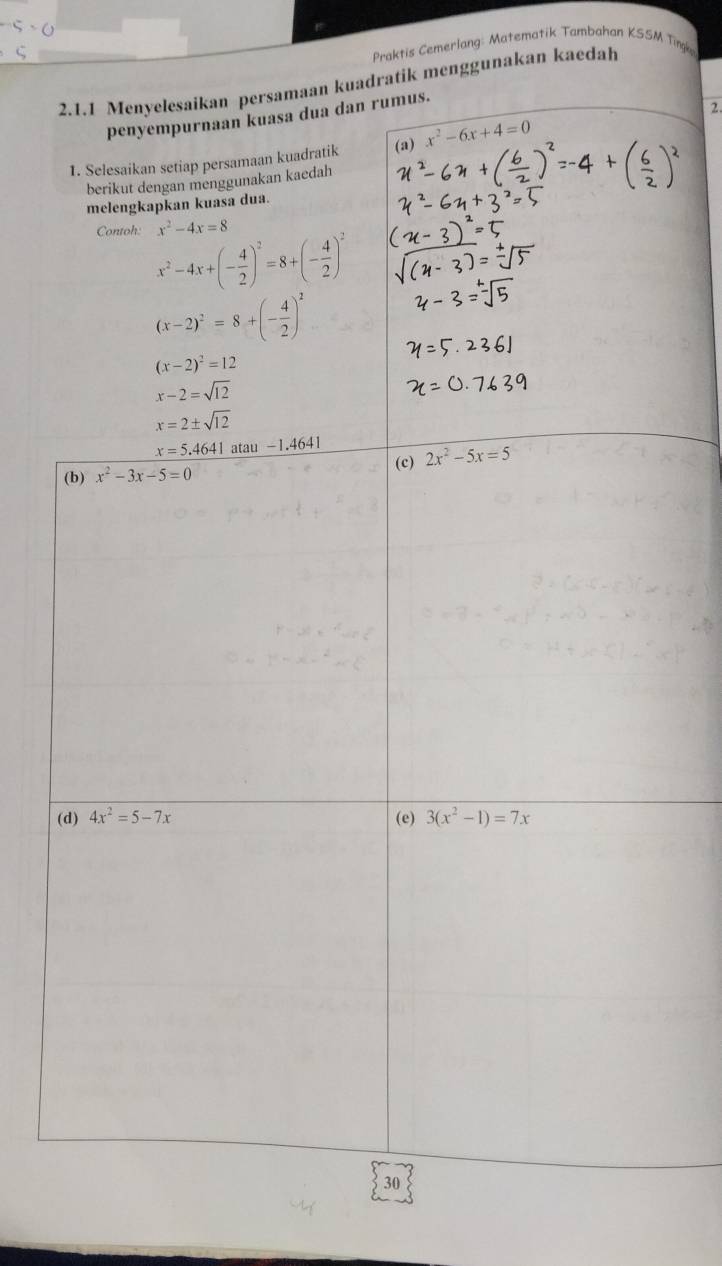 -5=0
5
Praktis Cemerlang: Matematik Tambahan KSSM
2.1.1 Menyelesaikan persamaan kuadratik menggunakan kaedah
penyempurnaan kuasa dua dan rumus.
2.
1. Selesaikan setiap persamaan kuadratik
berikut dengan menggunakan kaedah
melengkapkan kuasa dua.
Contoh: x² − 4x = 8
x² − 4x + (−4/2)² = 8 + (−4/2)²
(x − 2)² = 8 + (−4/2)²
(x − 2)² = 12
x − 2 = √12
x = 2 ± √12
x = 5.4641 atau −1.4641
(a) x² − 6x + 4 = 0
x² − 6x + (6/2)² = −4 + (6/2)²
x² − 6x + 3² = 5
(x − 3)² = 5
√(x − 3) = ±√5
x − 3 = ±√5
x = 5.2361
x = 0.7639
(b) x² − 3x − 5 = 0
(c) 2x² − 5x = 5
(d) 4x² = 5 − 7x
(e) 3(x² − 1) = 7x
30